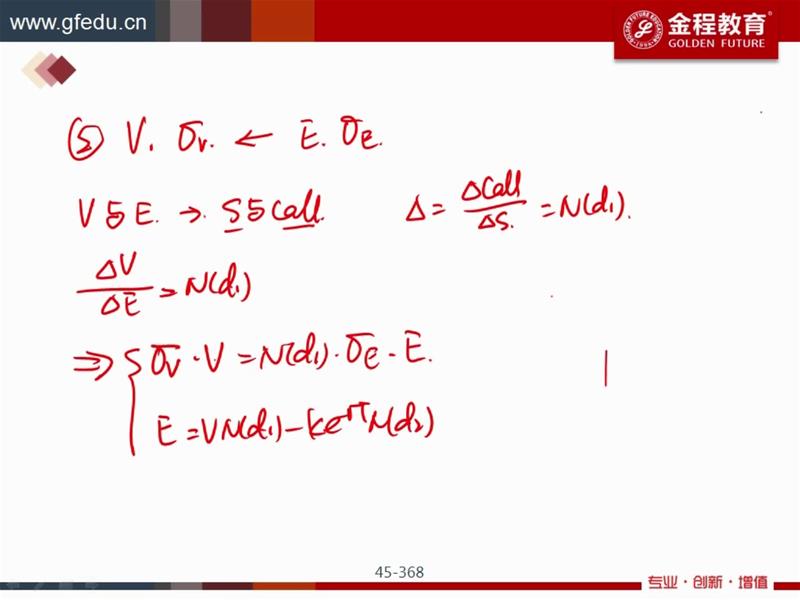 www.gfedu.cn
金程教育
GOLDEN FUTURE
② V. σv. ← E. σe.
V与E. → S与Call. Δ = ΔCall/ΔS. = N(d₁).
ΔV/ΔE = N(d₁)
⇒ { σv · V = N(d₁) · σe · E.
E = VN(d₁) - Ke^rT N(d₂)
45-368
专业·创新·增值